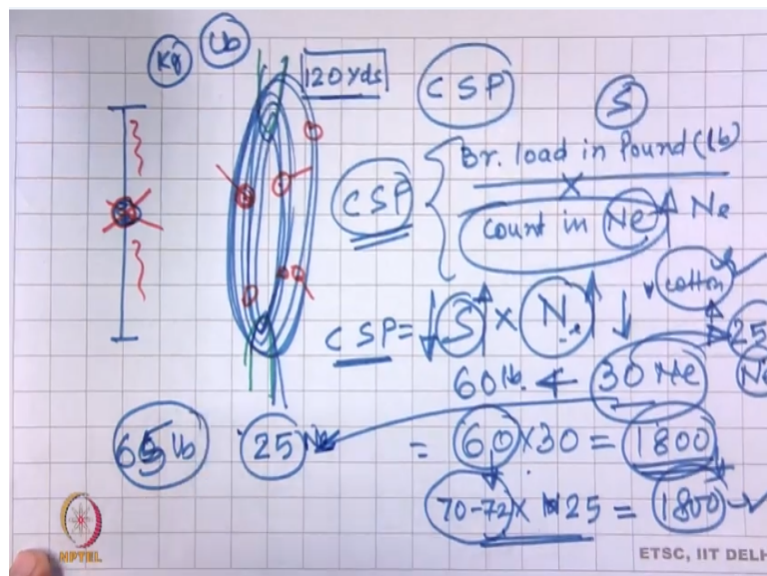 Kg Lb
120 yds
CSP
S
CSP
Br. load in Pound (lb)
×
Count in Ne Ne
Cotton
CSP = S × Ne
25
60 lb. ← 30 Ne
65 lb 25 Ne
= 60 × 30 = 1800
70-72 × 25 = 1800
NPTEL
ETSC, IIT DELH